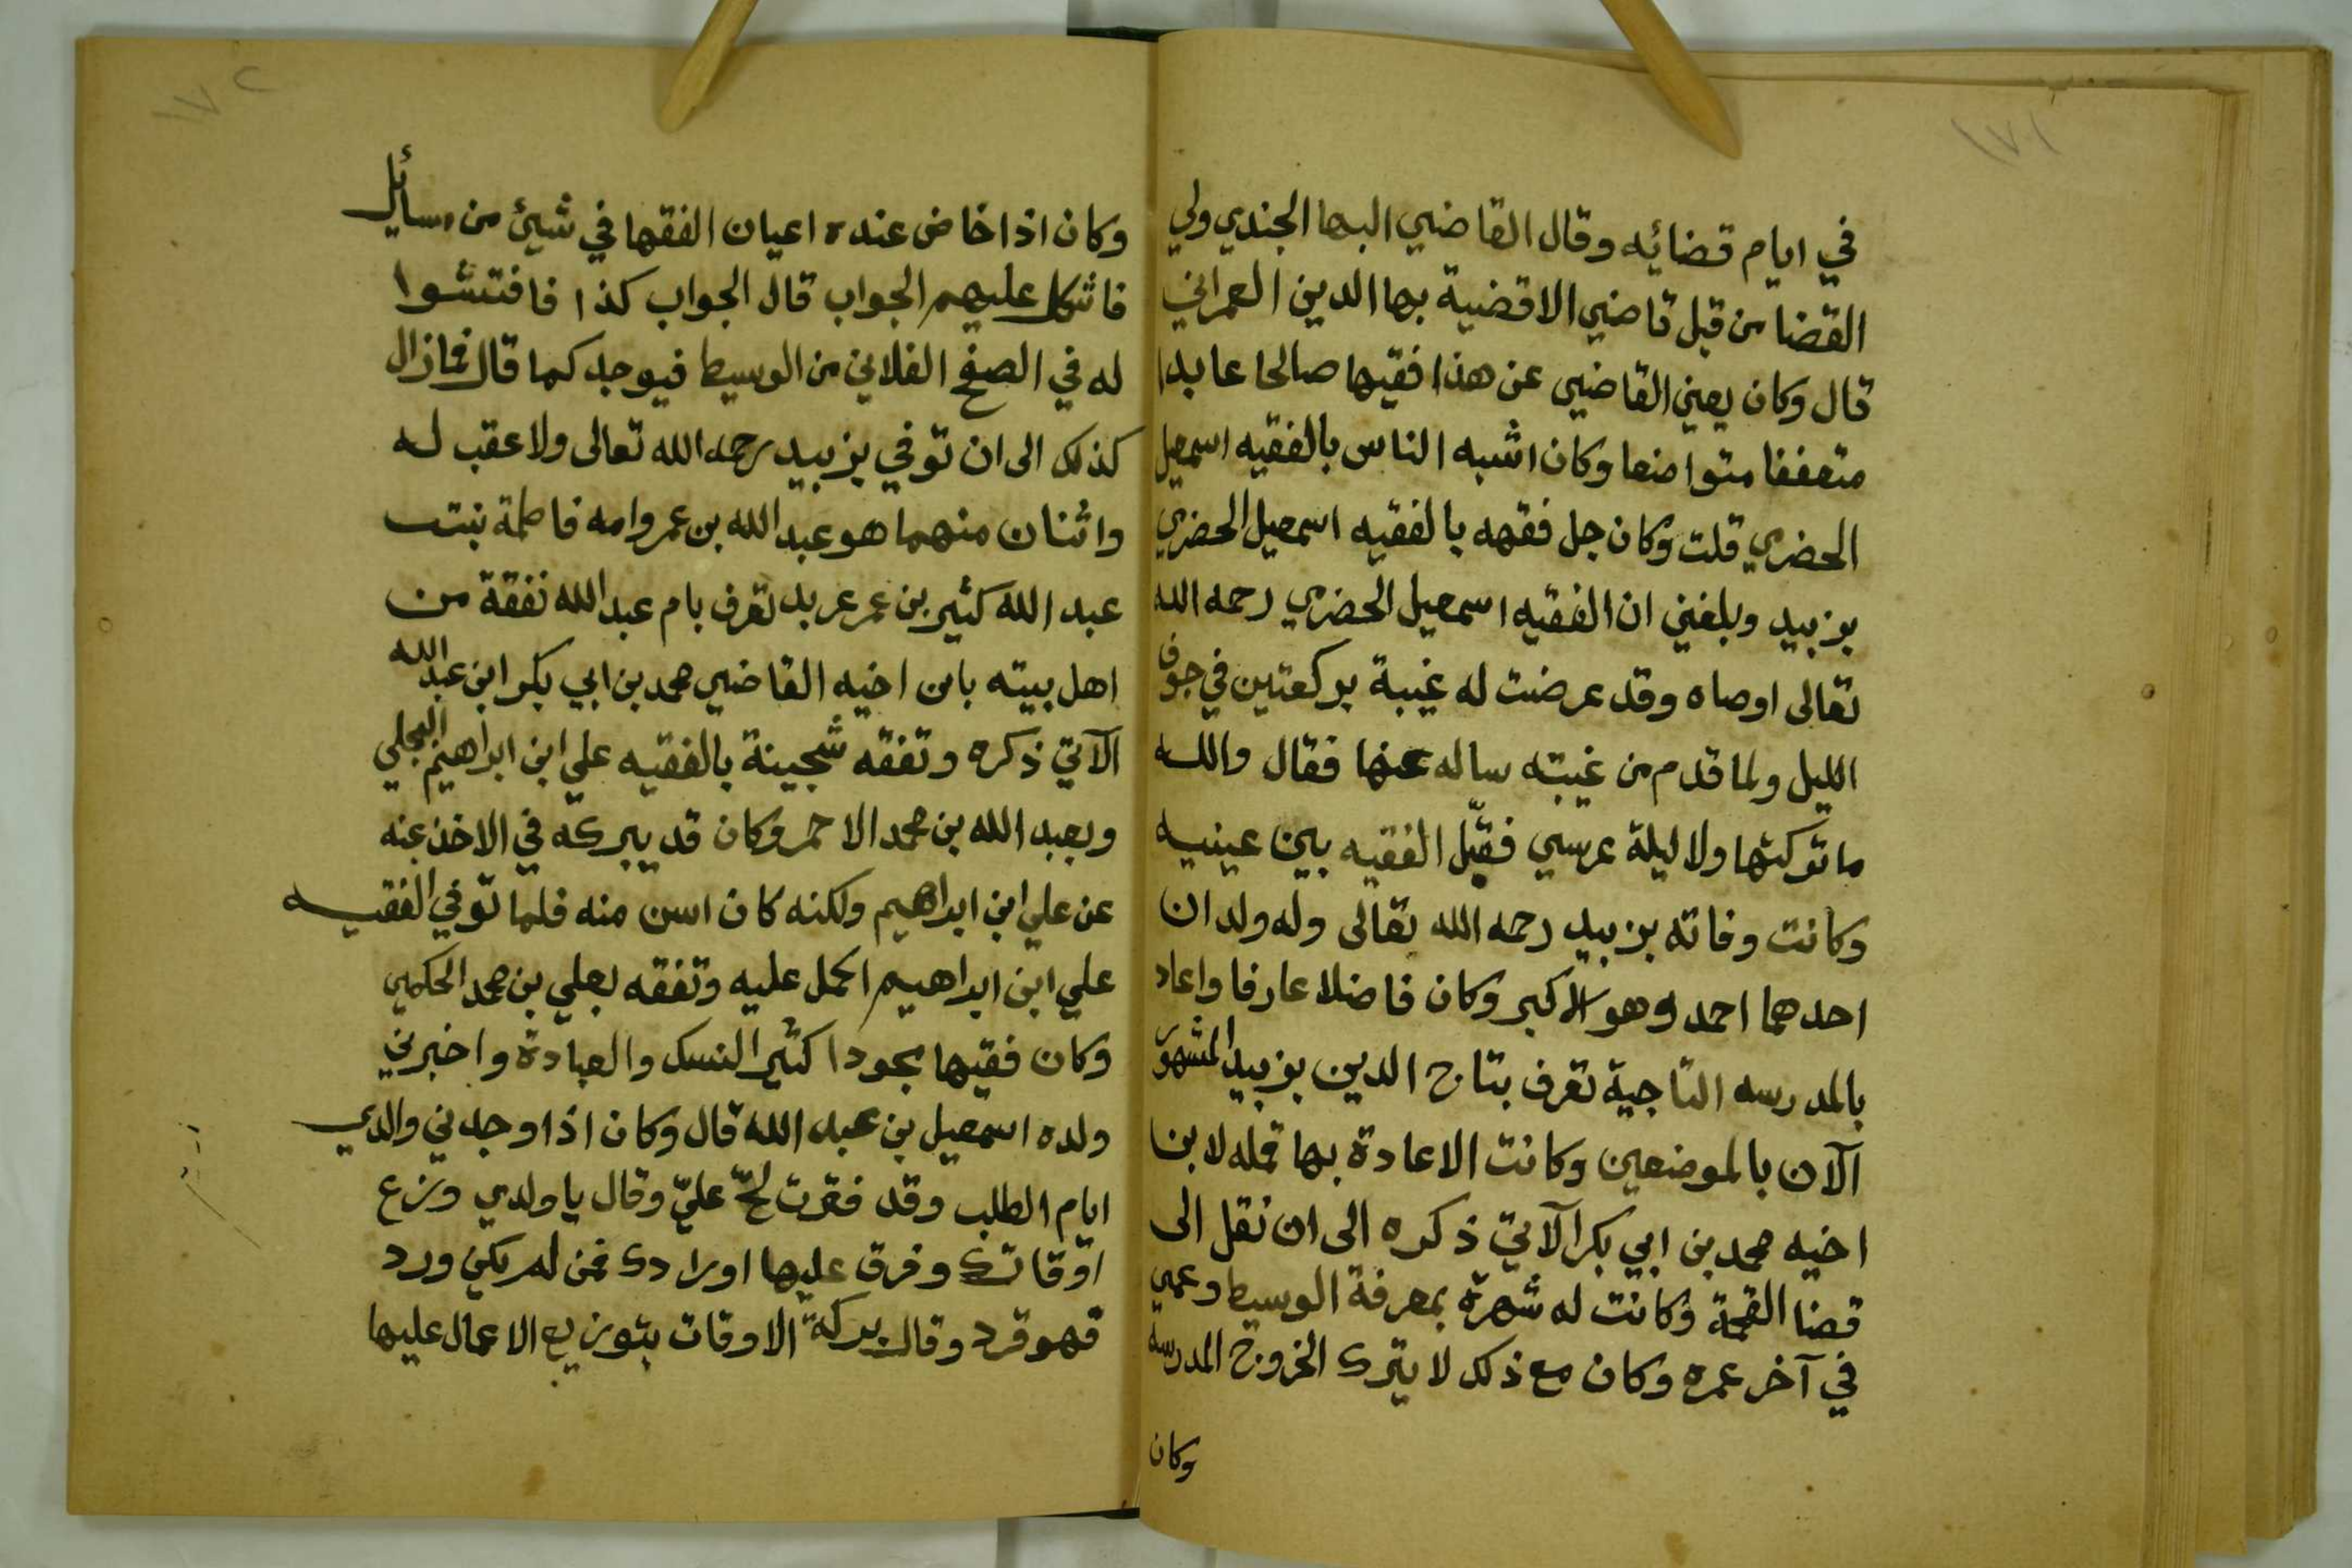 ١٧١
في ايام قضائه وقال القاضي البها الجندي ولي
القضا من قبل قاضي الاقضية بها الدين العمراني
قال وكان يعني القاضي عن هذا فقيها صالحا عابدا
متعففا متواضعا وكان اشبه الناس بالفقيه اسمعيل
الحضرمي قلت وكان جل فقهه بالفقيه اسمعيل الحضرمي
بزبيد وبلغني ان الفقيه اسمعيل الحضرمي رحمه الله
تعالى اوصاه وقد عرضت له غيبة بركعتين في جوف
الليل ولما قدم من غيبته ساله عنها فقال والله
ما تركتها ولا ليلة عرسي فقبّل الفقيه بين عينيه
وكانت وفاته بزبيد رحمه الله تعالى وله ولدان
احدهما احمد وهو الاكبر وكان فاضلا عارفا واعاد
بالمدرسه التاجية تعرف بتاج الدين بزبيد المشهور
الآن بالموضعين وكانت الاعادة بها قمله لابنا
اخيه محمد بن ابي بكر الآتي ذكره الى ان نقل الى
قضا القحمة وكانت له شهرة بمعرفة الوسيط وعمي
في آخر عمره وكان مع ذلك لا يترك الخروج المدرسة
وكان
١٧٢
وكان اذا خاض عنده اعيان الفقها في شيئ من مسائل
فاشكل عليهم الجواب قال الجواب كذا فافتشوا
له في الصفح الفلاني من الوسيط فيوجد كما قال فمازال
كذلك الى ان توفي بزبيد رحمه الله تعالى ولا عقب له
واثنان منهما هو عبد الله بن عمر وامه فاطمة بنت
عبد الله كثير بن عمر عربد تعرف بام عبد الله نفقة من
اهل بيته بابن اخيه القاضي محمد بن ابي بكر ابن عبد الله
الآتي ذكره وتفقه شجينة بالفقيه علي ابن ابراهيم البجلي
وبعبد الله بن محمد الاحمر وكان قد يبركه في الاخذ عنه
عن علي ابن ابراهيم ولكنه كان اسن منه فلما توفي الفقيه
علي ابن ابراهيم اكمل عليه وتفقه بعلي بن محمد الحكمي
وكان فقيها مجودا كثير النسك والعبادة واخبرني
ولده اسمعيل بن عبد الله قال وكان اذا وجدني والدي
ايام الطلب وقد فقرت لحّ عليّ وقال يا ولدي وزع
اوقاتك وفرق عليها اورادك فمن لم يكن ورد
فهو قرد وقال بركة الاوقات بتوزيع الاعمال عليها